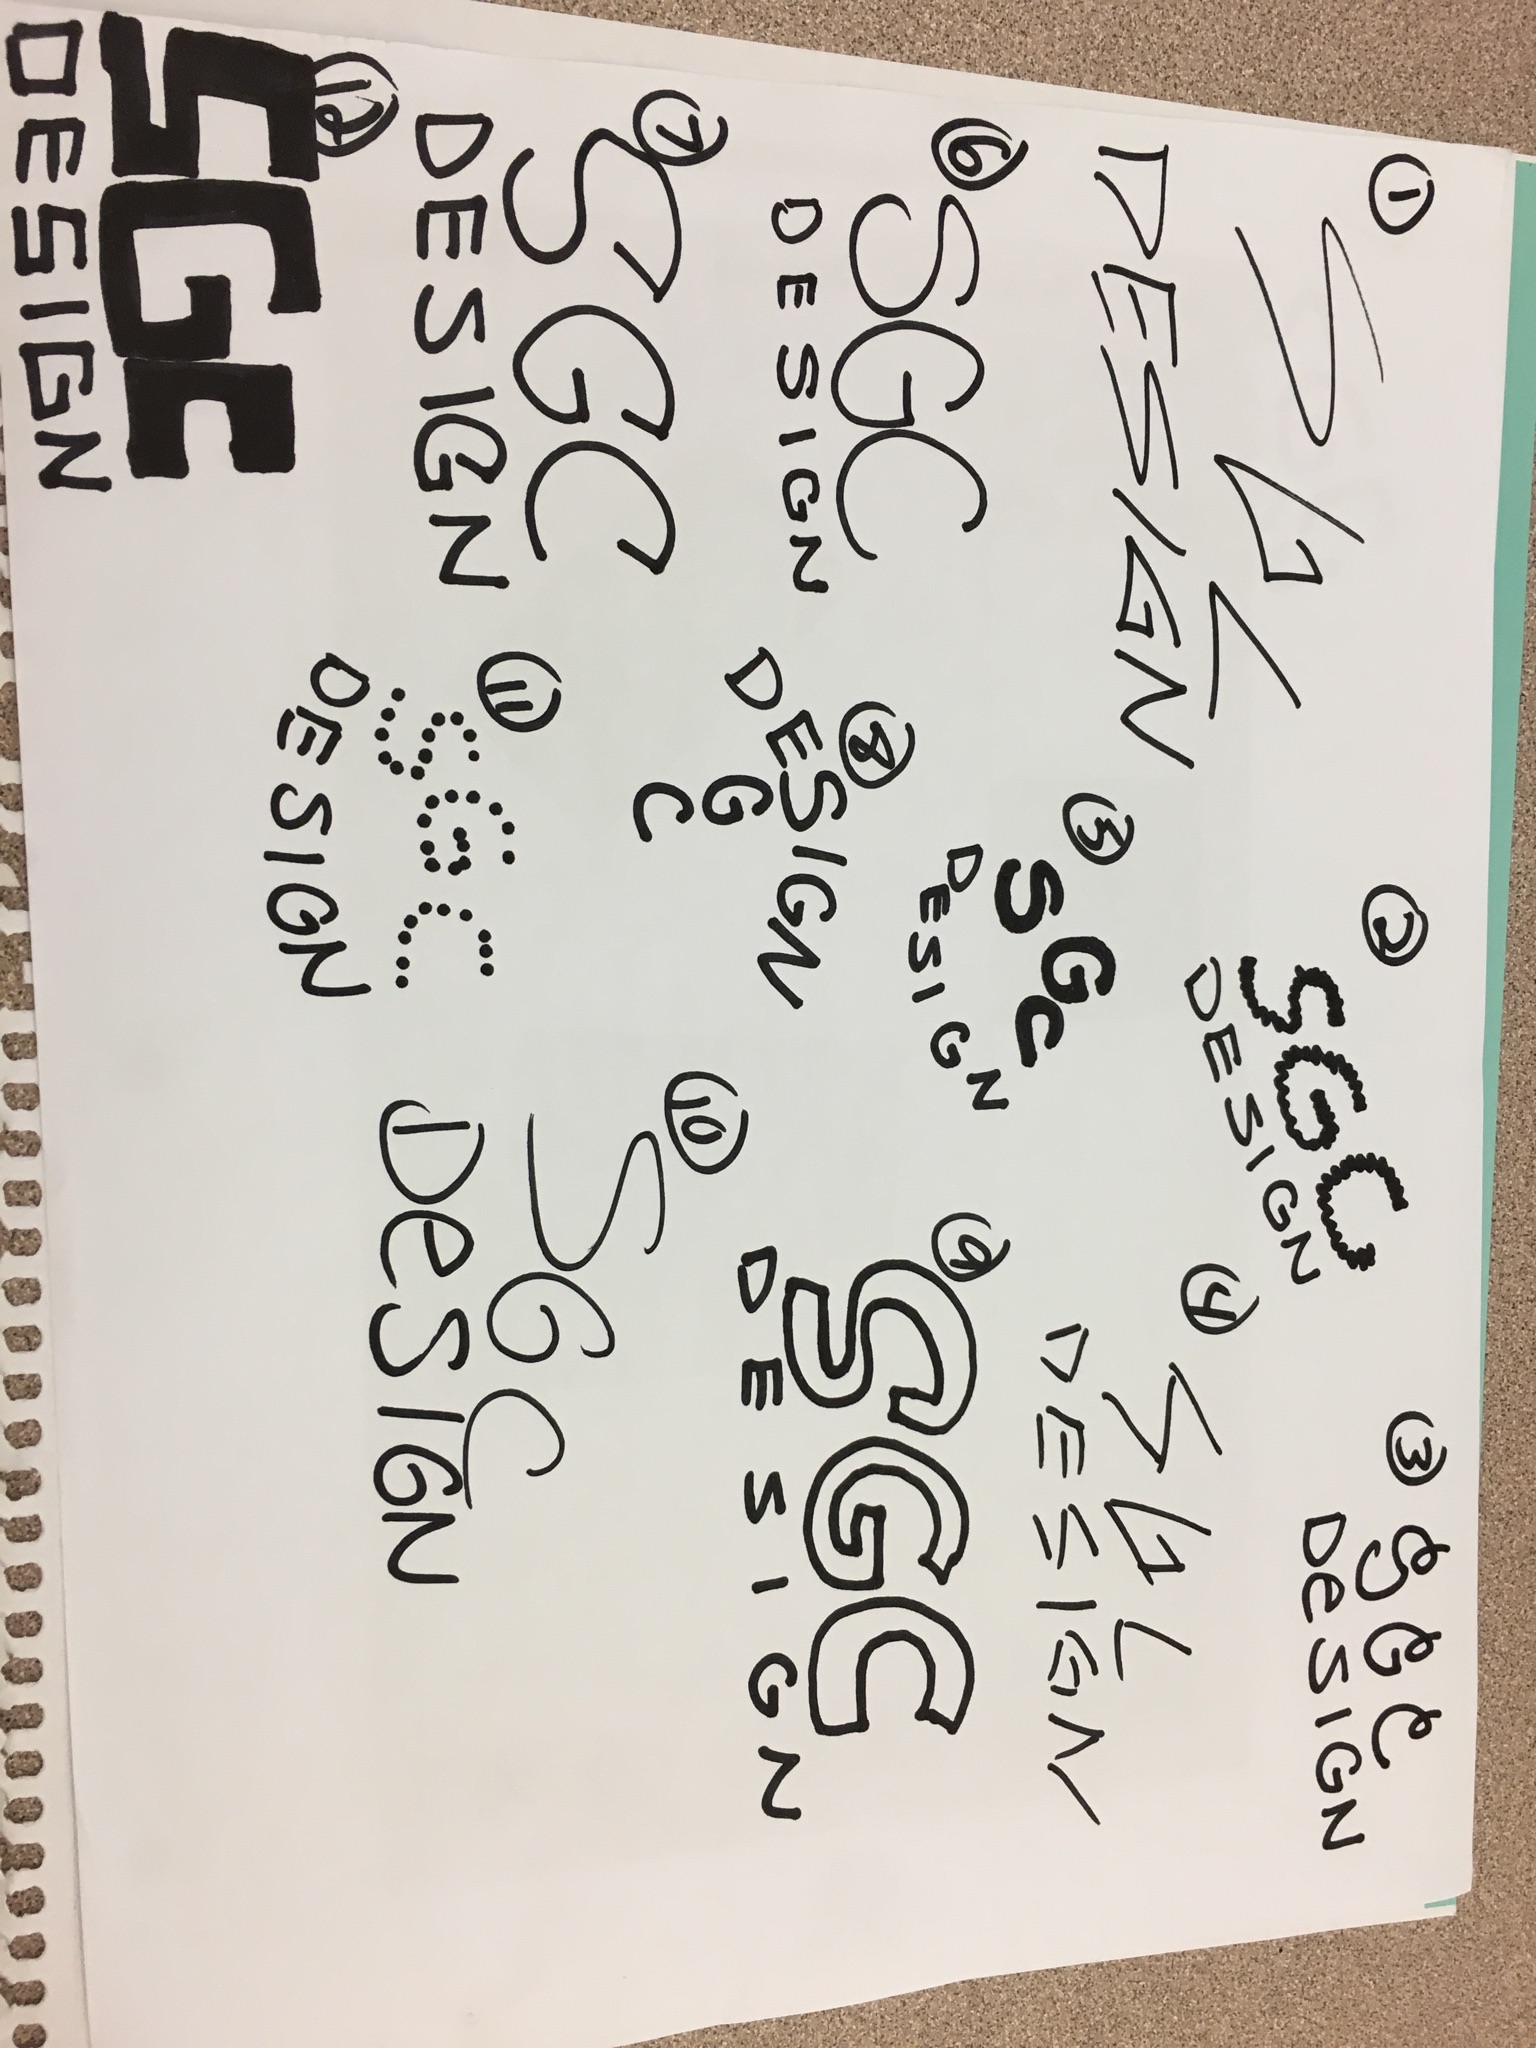 1
SGC
DESIGN
2
SGC
DESIGN
3
SGC
DeSIGN
4
SGC
DESIGN
5
SGC
DESIGN
6
SGC
DESIGN
7
SGC
DESIGN
8
DESIGN
G
C
9
SGC
DESIGN
10
SGC
DeSIGN
11
SGC
DESIGN
12
SGC
DESIGN